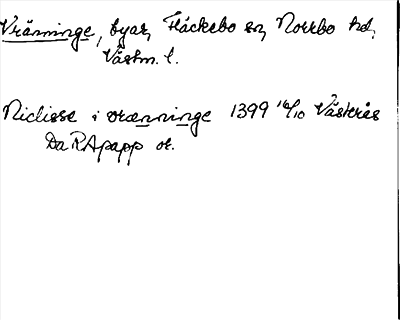 Vränninge, byar, Fläckebo sn, Norrbo hd,
Västm. l.
Niclisse i vrænninge 1399 16/10 Västerås
Da RApapp or.